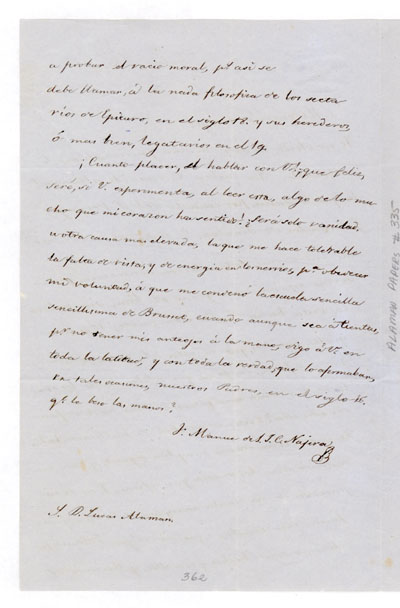 a probar el vacio moral, pr. asi se
debe llamar, á la nada filosofica de los secta
rios de Epicuro, en el siglo 18. y sus herederos,
ó mas bien, legatarios en el 19.
¡Cuanto placer, el hablar con V.! ¡que feliz,
seré, si V. esperimenta, al leer esta, algo de lo mu
cho que mi corazon ha sentido! ¿Será solo vanidad
u otra causa mas elevada, la que me hace tolerable
la falta de vista, y de energia en los nervios, pa. obedecer
mi voluntad, á que me condenó la escuela sencilla
sencillisima de Brusset, cuando aunque sea á tientas,
pr. no tener mis anteojos á la mano, digo á V. en
toda la latitud, y con toda la verdad, que lo afirmaban,
en tales ocasiones, nuestros Padres, en el siglo 16.
q. le beso las manos?
Fr. Manuel de S. J. C. Nájera
S. D. Lucas Alaman.
362
ALAMAN PAPERS # 335